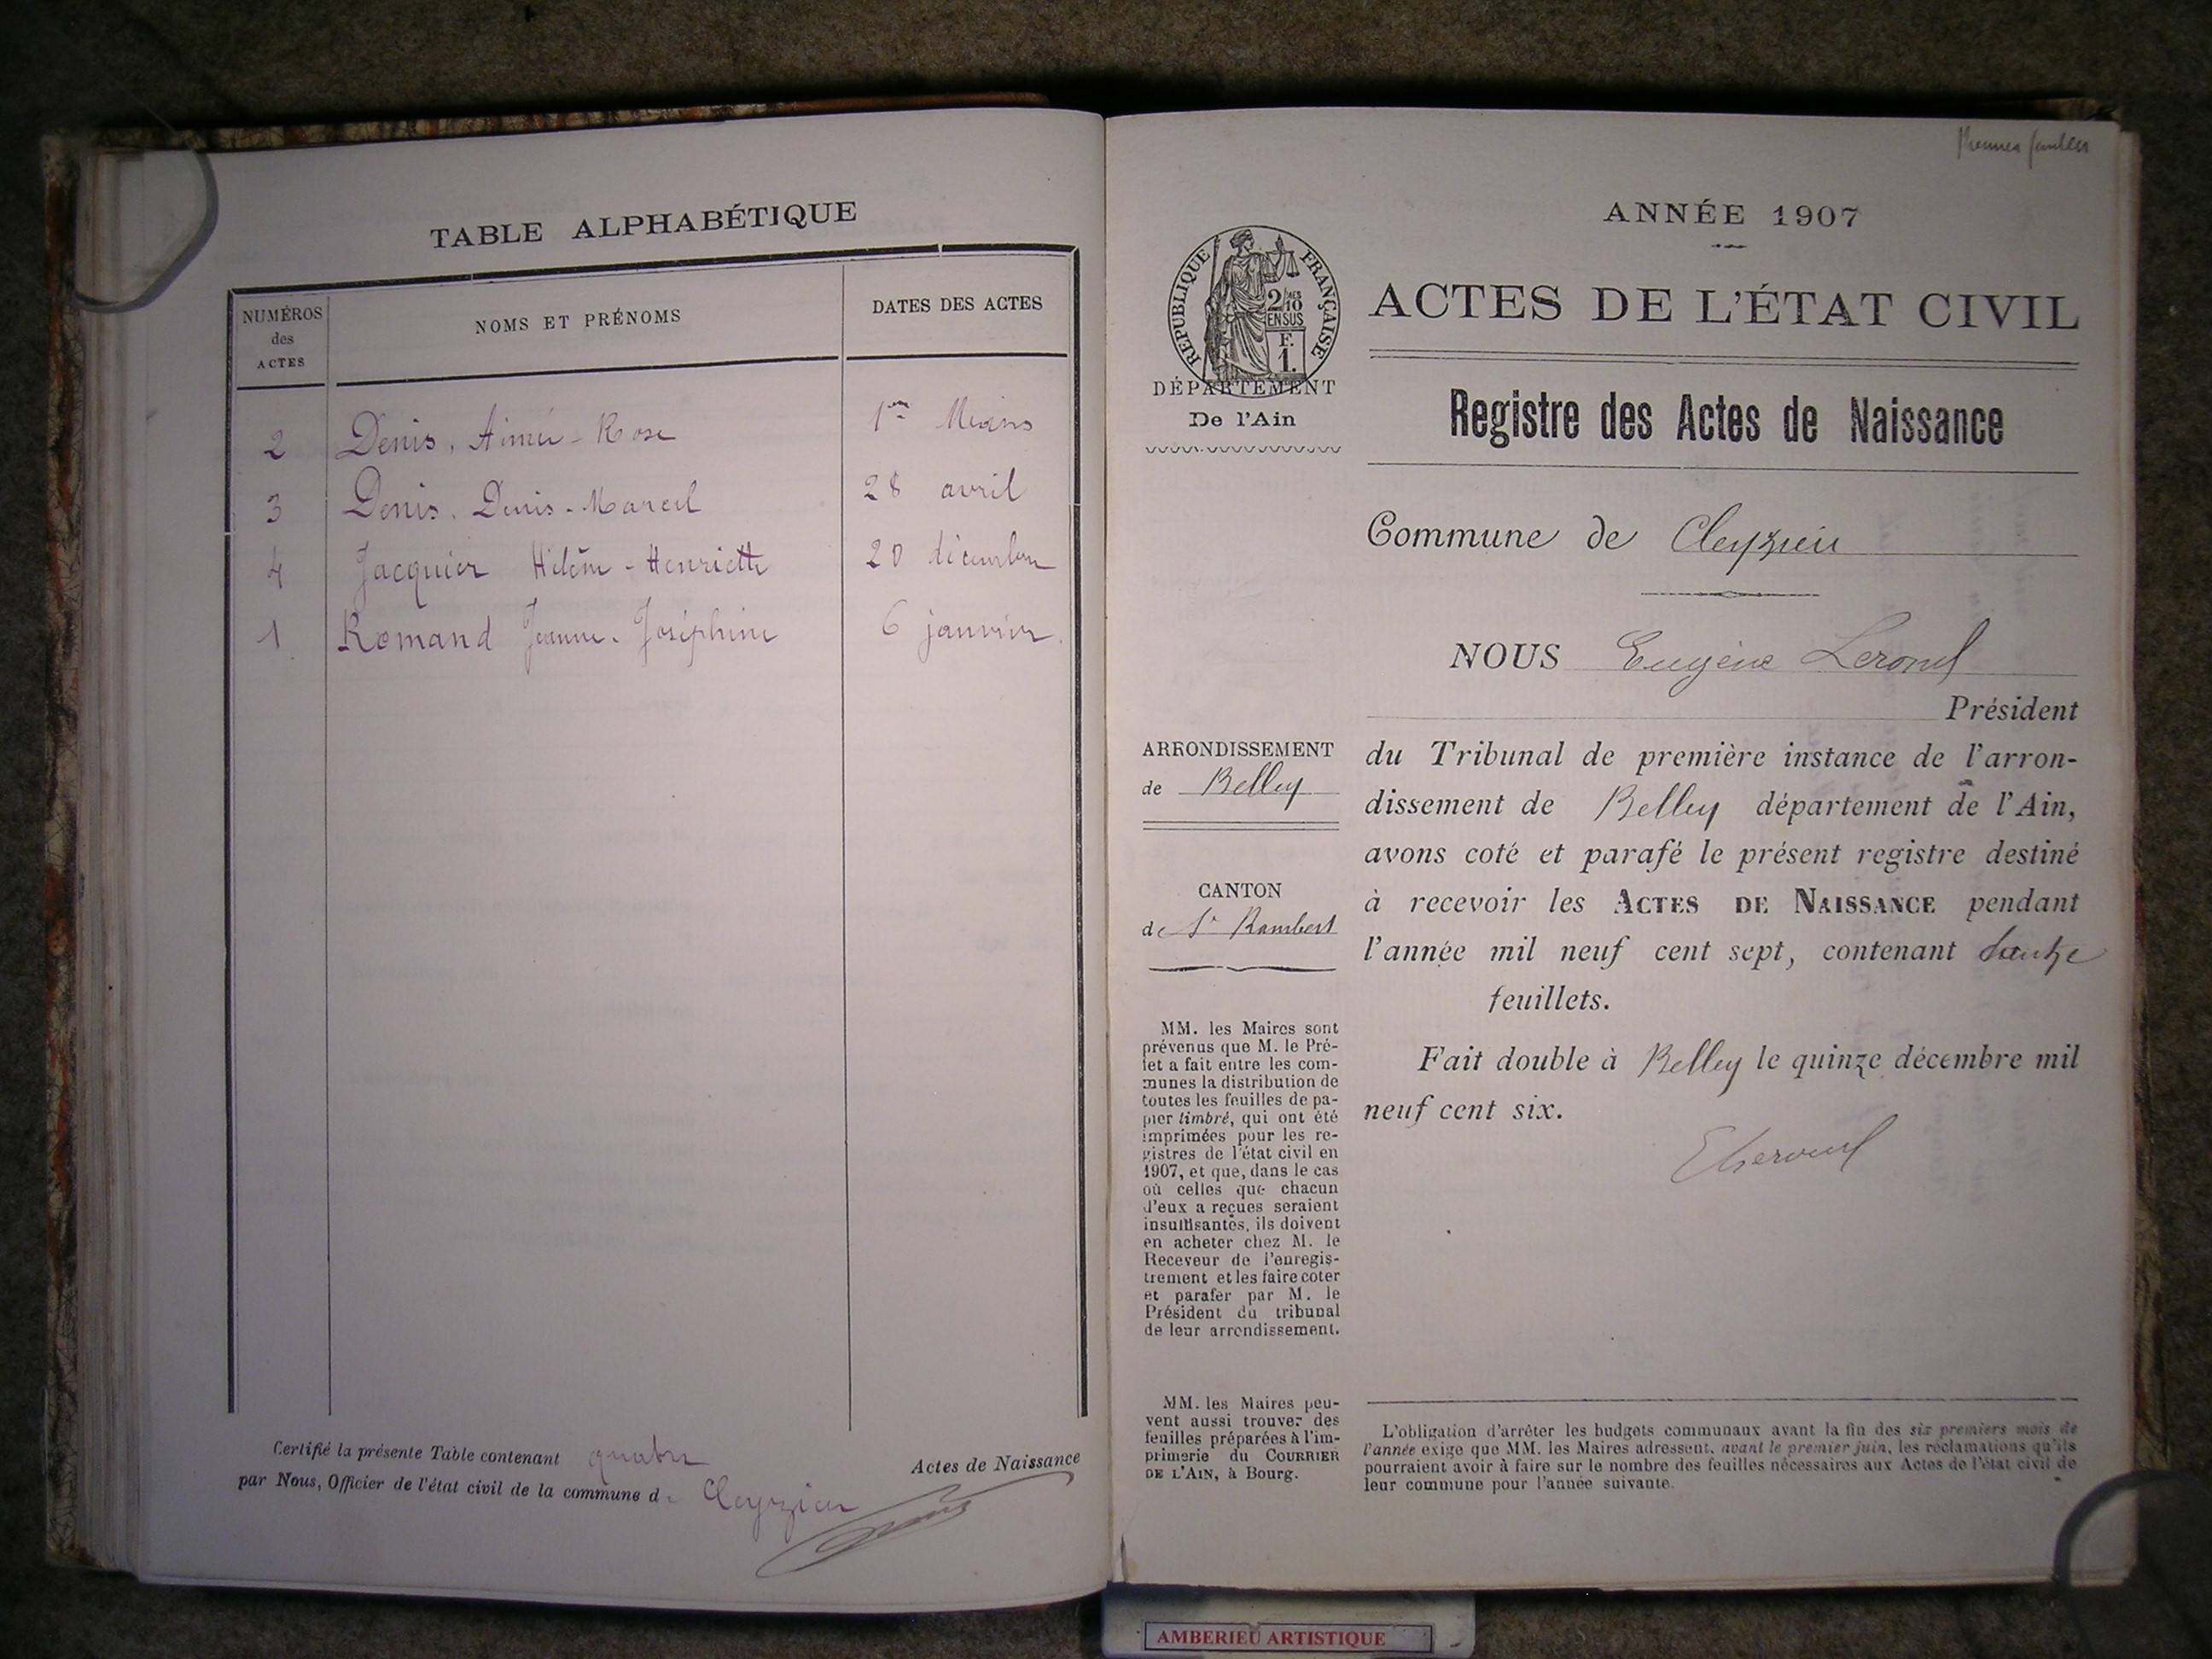 TABLE ALPHABÉTIQUE
NUMÉROS
des
ACTES
NOMS ET PRÉNOMS
DATES DES ACTES
2 Denis, Aimée-Rose 1er Mars
3 Denis, Denis-Marcel 28 avril
4 Jacquier Hélène-Henriette 20 décembre
1 Romand Jeanne-Joséphine 6 janvier
Certifié la présente Table contenant quatre Actes de Naissance
par Nous, Officier de l'état civil de la commune de Cleyzieu
Premier feuillet
ANNÉE 1907
RÉPUBLIQUE FRANÇAISE
2/10MES
EN SUS
F.
1.
ACTES DE L'ÉTAT CIVIL
DÉPARTEMENT
De l'Ain
Registre des Actes de Naissance
Commune de Cleyzieu
NOUS Eugène
Président
ARRONDISSEMENT
de Belley
du Tribunal de première instance de l'arron-
dissement de Belley département de l'Ain,
avons coté et parafé le présent registre destiné
à recevoir les ACTES DE NAISSANCE pendant
l'année mil neuf cent sept, contenant
feuillets.
Fait double à Belley le quinze décembre mil
neuf cent six.
CANTON
de St Rambert
MM. les Maires sont
prévenus que M. le Pré-
fet a fait entre les com-
munes la distribution de
toutes les feuilles de pa-
pier timbré, qui ont été
imprimées pour les re-
gistres de l'état civil en
1907, et que, dans le cas
où celles que chacun
d'eux a reçues seraient
insuffisantes, ils doivent
en acheter chez M. le
Receveur de l'enregis-
trement et les faire coter
et parafer par M. le
Président du tribunal
de leur arrondissement.
MM. les Maires peu-
vent aussi trouver des
feuilles préparées à l'im-
primerie du COURRIER
DE L'AIN, à Bourg.
L'obligation d'arrêter les budgets communaux avant la fin des six premiers mois de
l'année exige que MM. les Maires adressent, avant le premier juin, les réclamations qu'ils
pourraient avoir à faire sur le nombre des feuilles nécessaires aux Actes de l'état civil de
leur commune pour l'année suivante.
AMBERIEU ARTISTIQUE